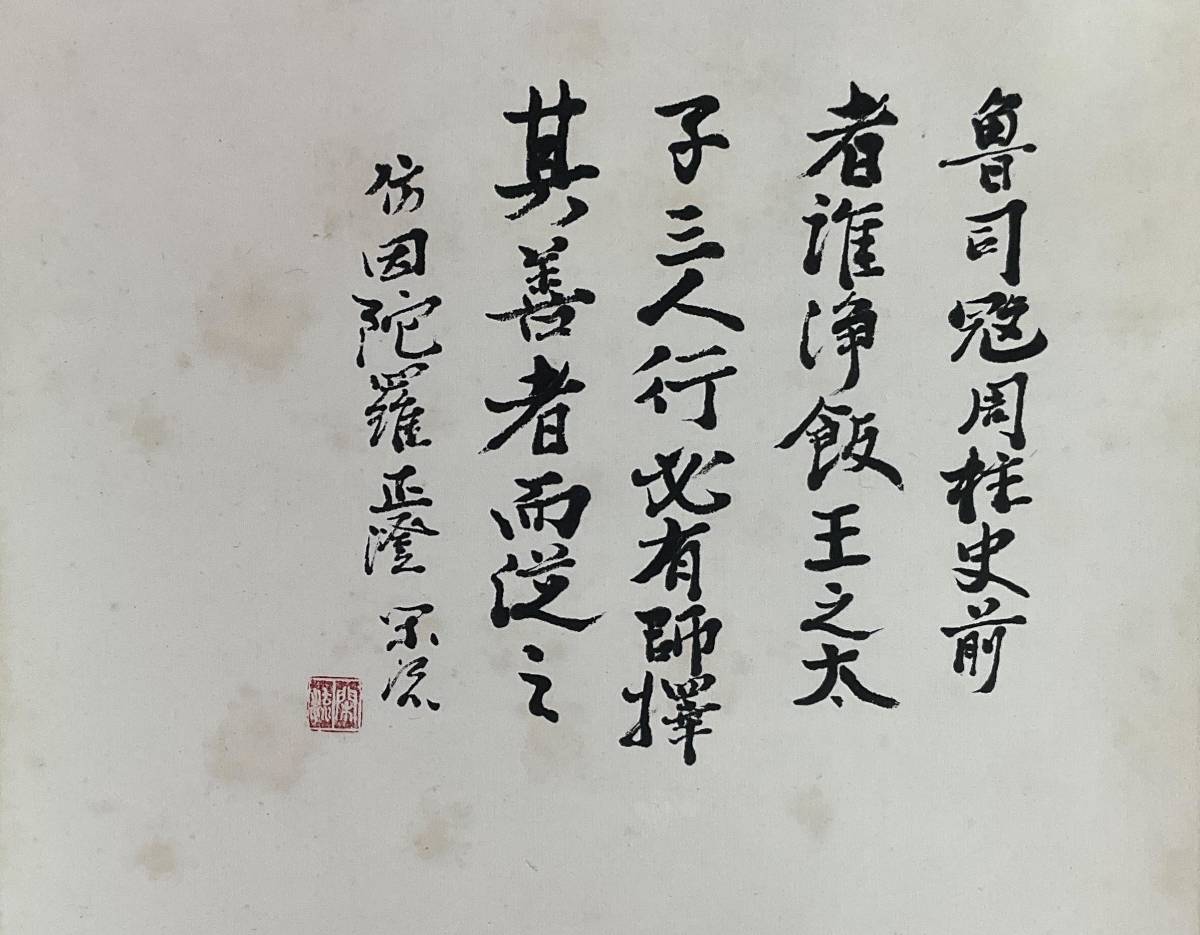 魯司寇周柱史前
者誰浄飯王之太
子三人行必有師擇
其善者而従之
倣因陀羅正澄 宗源